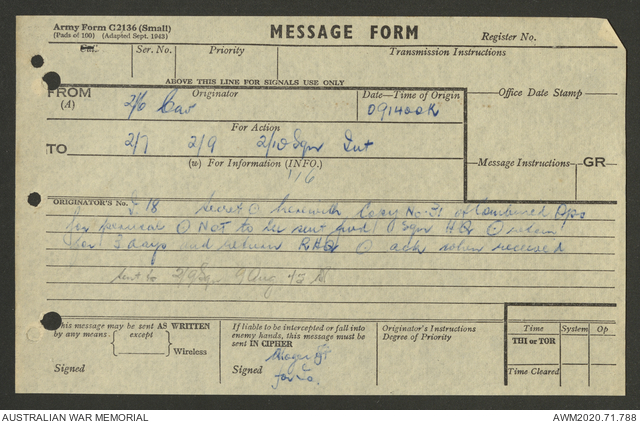 Army Form C2136 (Small)
(Pads of 100) (Adapted Sept. 1943)
MESSAGE FORM
Register No.
Cat.
Ser. No.
Priority
Transmission Instructions
ABOVE THIS LINE FOR SIGNALS USE ONLY
FROM
(A)
Originator
2/6 Cav
Date—Time of Origin
091400K
Office Date Stamp
For Action
TO
2/7 2/9 2/10 Sqn Int
(w) For Information (INFO.)
1/6
Message Instructions
GR
ORIGINATOR'S No.
I 18 Secret @ herewith Copy No. 31 of Combined Ops
for perusal @ NOT to be sent fwd Sqn HQ @ retain
for 3 days and return RHQ @ ack when received
Sent to 2/9 Sqn 9 Aug. 45
This message may be sent AS WRITTEN
by any means except Wireless
Signed
If liable to be intercepted or fall into
enemy hands, this message must be
sent IN CIPHER
Signed
for
Originator's Instructions
Degree of Priority
Time
System
Op
THI or TOR
Time Cleared
AUSTRALIAN WAR MEMORIAL
AWM2020.71.788